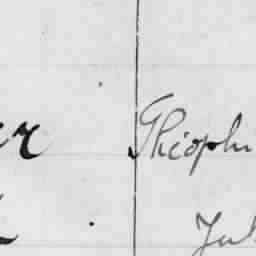 er Theophi
Jul